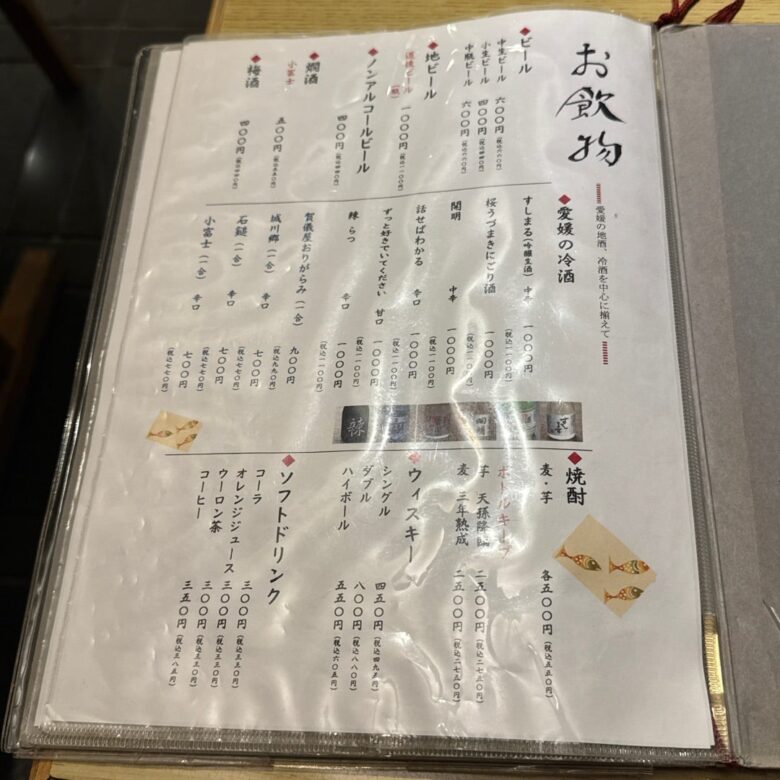 お飲物
愛媛の地酒、冷酒を中心に揃えて
◆ビール
中生ビール 六〇〇円（税込六六〇円）
小生ビール 四〇〇円（税込四四〇円）
中瓶ビール 六〇〇円（税込六六〇円）
◆地ビール
道後ビール（瓶） 一〇〇〇円（税込一一〇〇円）
◆ノンアルコールビール
四〇〇円（税込四四〇円）
◆燗酒
小富士 五〇〇円（税込五五〇円）
◆梅酒
四〇〇円（税込四四〇円）
◆愛媛の冷酒
すしまる（吟醸生酒） 中辛 一〇〇〇円（税込一一〇〇円）
桜うづまきにごり酒 一〇〇〇円（税込一一〇〇円）
開明 中辛 一〇〇〇円（税込一一〇〇円）
話せばわかる 辛口 一〇〇〇円（税込一一〇〇円）
ずっと好きでいてください 甘口 一〇〇〇円（税込一一〇〇円）
辣 らつ 辛口 一〇〇〇円（税込一一〇〇円）
賀儀屋おりがらみ（一合） 九〇〇円（税込九九〇円）
城川郷（一合） 辛口 七〇〇円（税込七七〇円）
石鎚（一合） 辛口 七〇〇円（税込七七〇円）
小富士（一合） 辛口 七〇〇円（税込七七〇円）
◆焼酎
麦・芋 各五〇〇円（税込五五〇円）
ボトルキープ
芋 天孫降臨 二五〇〇円（税込二七五〇円）
麦 三年熟成 二五〇〇円（税込二七五〇円）
◆ウィスキー
シングル 四五〇円（税込四九五円）
ダブル 八〇〇円（税込八八〇円）
ハイボール 五五〇円（税込六〇五円）
◆ソフトドリンク
コーラ 三〇〇円（税込三三〇円）
オレンジジュース 三〇〇円（税込三三〇円）
ウーロン茶 三〇〇円（税込三三〇円）
コーヒー 三五〇円（税込三八五円）